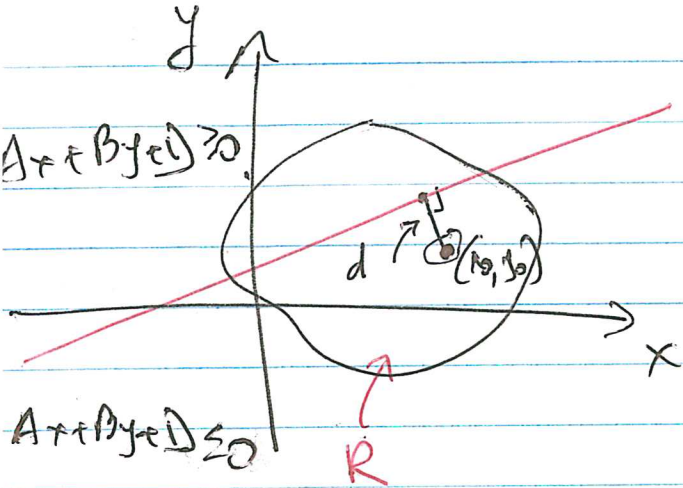 y
Ax+By+D≥0
d
(x₀,y₀)
x
Ax+By+D≤0
R